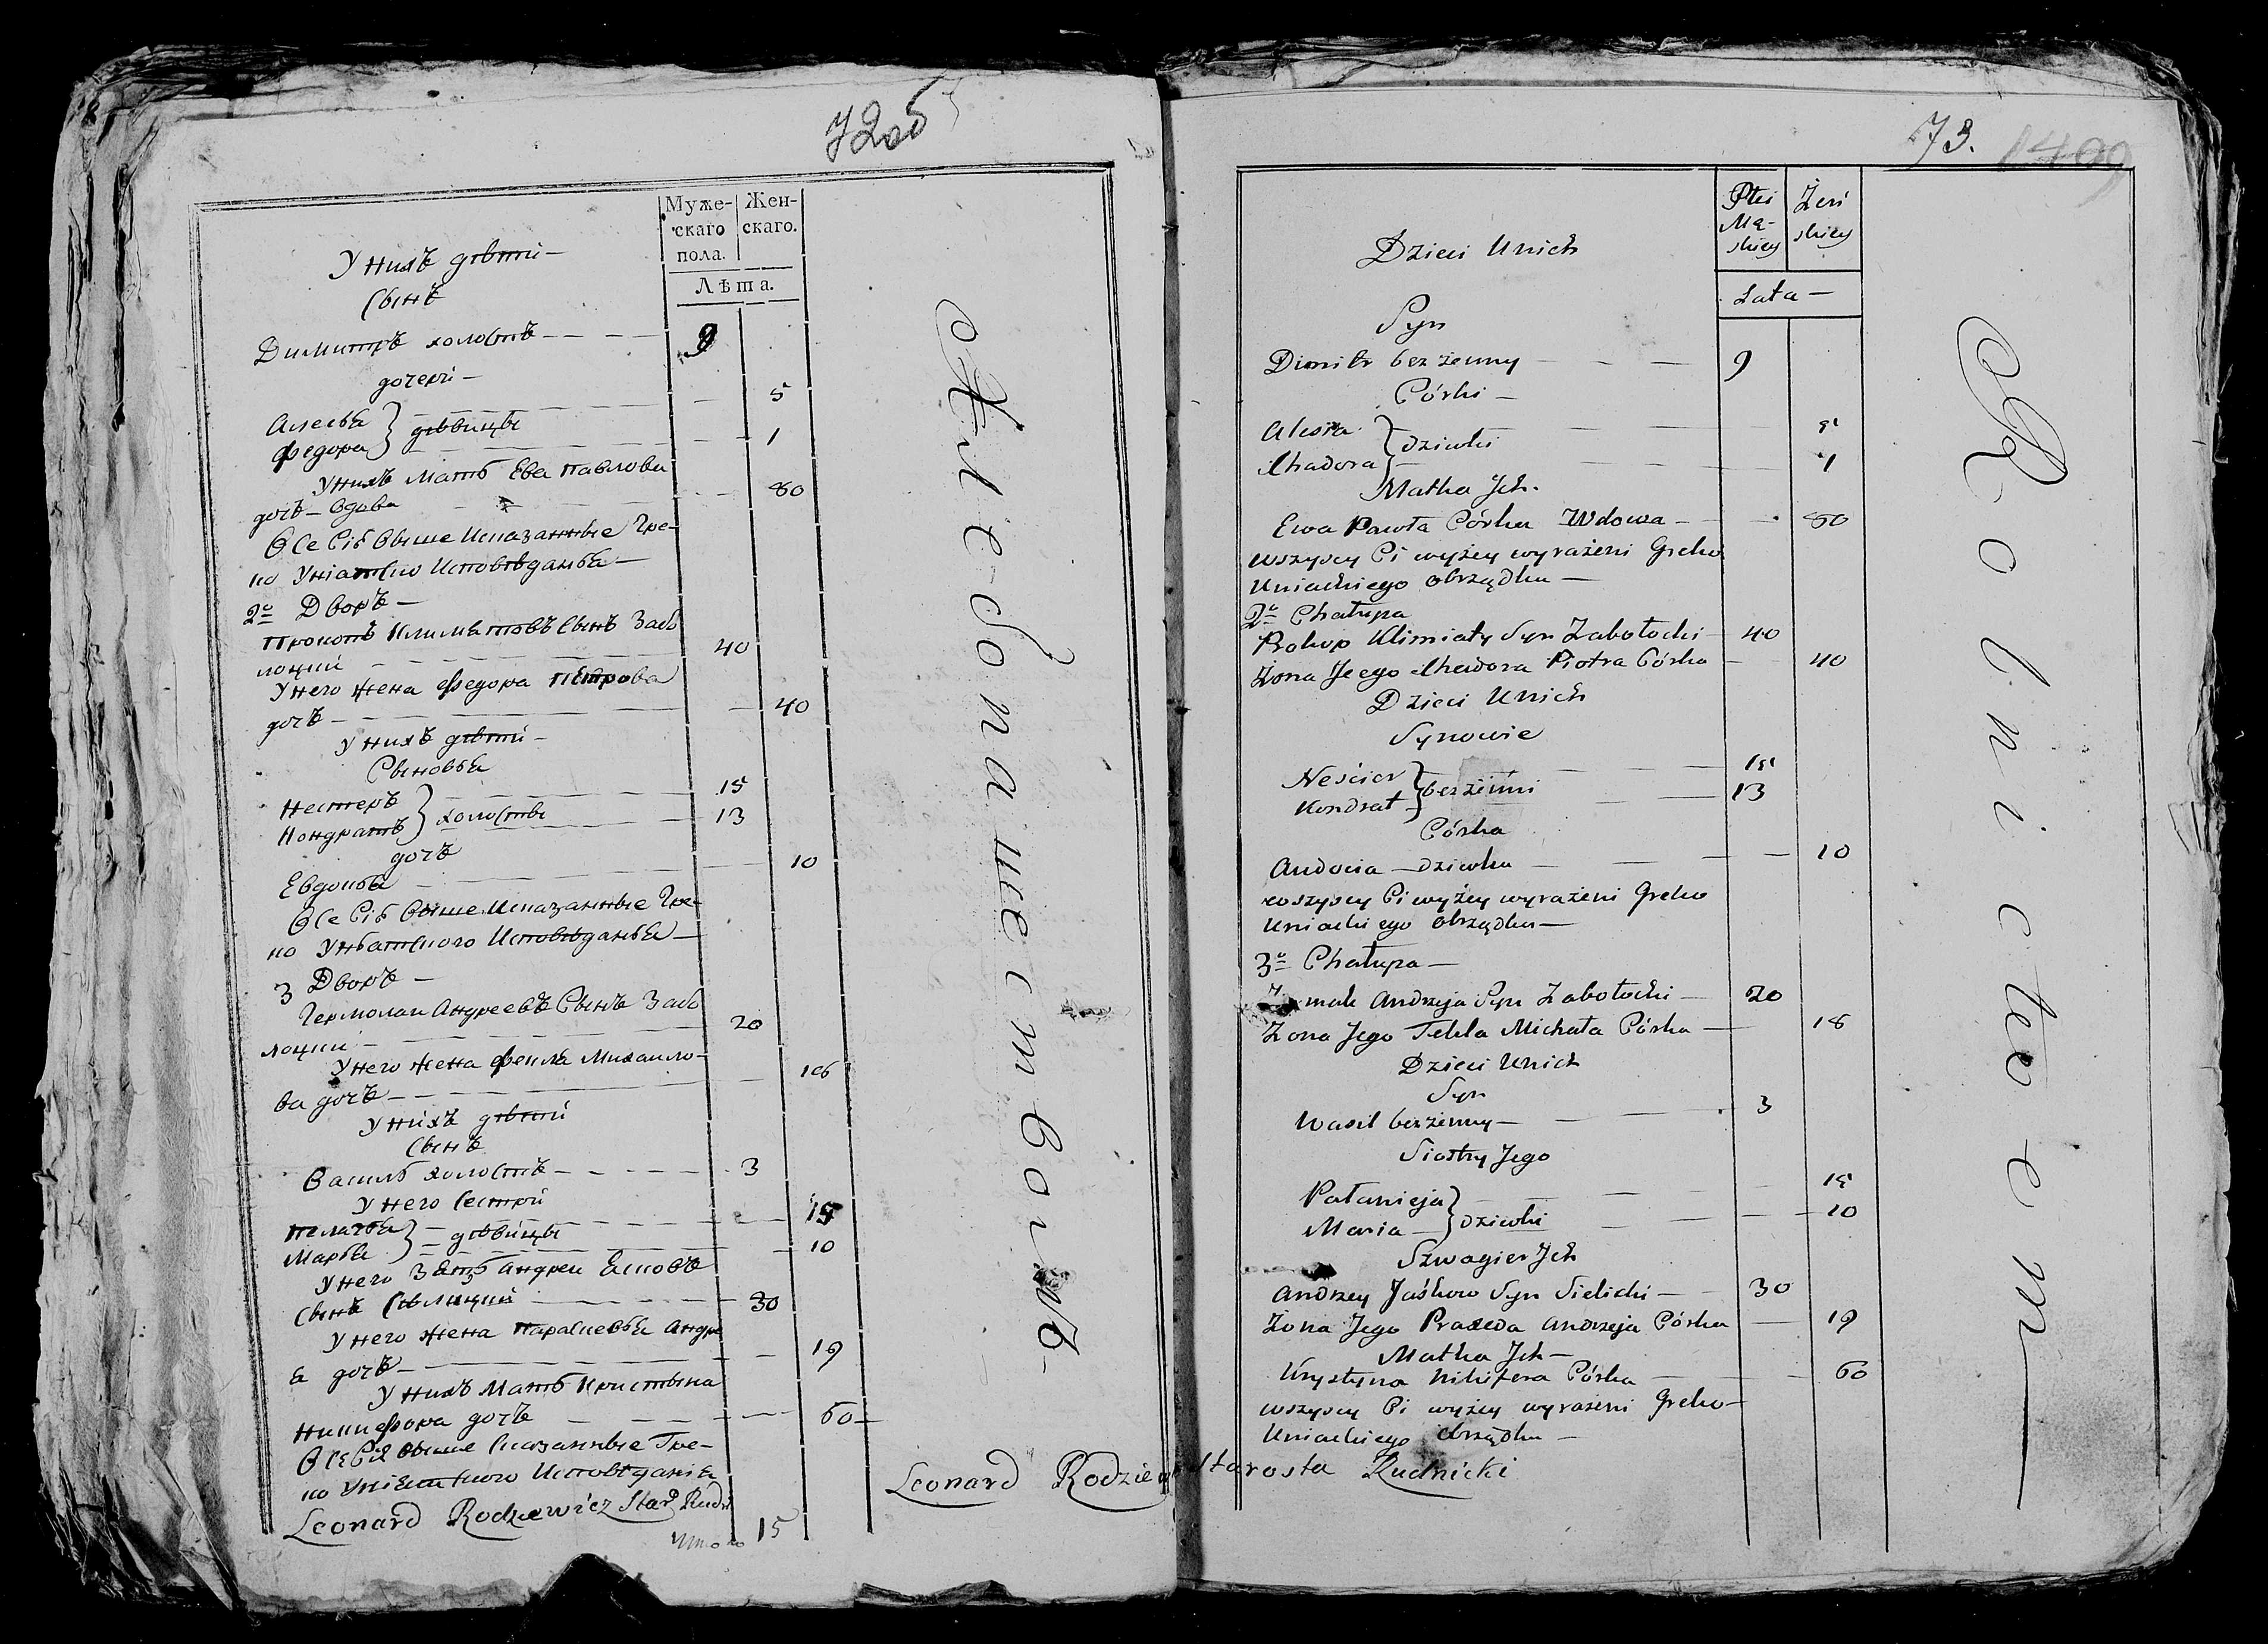 72об
Муже- Жен-
скаго скаго.
пола.
Лѣта.
У нихъ дѣти —
Сынъ
Димитръ холостъ — — — 9
дочери —
Алесья 5
Федора } дѣвицы 1
У нихъ мать Ева Павлова
дочь — вдова 80
Все сіи выше показанные Гре-
ко Уніатско Исповѣданья —
2о Дворъ —
Прокопъ Климятовъ сынъ Забо
лоцкий 40
У него жена Федора Петрова
дочь — 40
У нихъ дѣти —
Сыновья
Нестеръ 15
Кондратъ } холосты 13
дочь
Евдокья 10
Все сіи выше показанные Гре-
ко Уньатского Исповѣданья —
3 Дворъ —
Гермолаи Андреевъ Сынъ Забо
лоцкии 20
У него жена Фекла Михаило-
ва дочь — 18
У нихъ дѣти
Сынъ
Василь холостъ — 3
У него сестры
Пелагея 15
Марья } дѣвицы 10
У него Зять Андреи Ясковъ
сынъ Сѣлицкий 30
У него жена Парасковья Андре
я дочь — 19
У нихъ Мать Кристына
Никифора дочь 60
Все сія выше сказанные Гре-
ко Уніятского Исповѣданія
Leonard Rodziewicz Star. Rud
Итого 15
Хлебопашествомъ
Leonard Rodziew Starosta Rudnicki
73.
1499
Płci Żeń
Mę- skiey
skiey
Lata —
Dzieci Unich
Syn
Dimitr bezżenny — — — 9
Córki —
Alesia 5
Chadora } Dziewki 1
Matka Ich.
Ewa Pawła Córka Wdowa — 80
wszyscy Ci wyżey wyrażeni Greko
Uniackiego obrządku —
2o Chałupa
Prokop Klimiaty Syn Zabołocki — 40
Żona Jeego Chwedora Piotra Córka — 40
Dzieci Unich
Synowie
Neścier 15
Kondrat } bezżenni 13
Córka
Audocia — Dziewka — 10
wszyscy Ci wyżey wyrażeni Greko
Uniackiego obrządku —
3o Chałupa —
mak Andrzeja Syn Zabołocki — 20
Żona Jego Tekla Michała Córka — 18
Dzieci Unich
Syn
Wasil bezżenny — 3
Siostry Jego
Pałanieja 15
Maria } Dziewki 10
Szwagier Ich
Andrzey Jaśkow Syn Sielicki — 30
Żona Jego Praxeda Andrzeja Córka — 19
Matka Ich —
Krystyna Nikifera Córka 60
wszyscy Ci wyżey wyrażeni Greko —
Uniackiego obrządku —
Rolnictwem